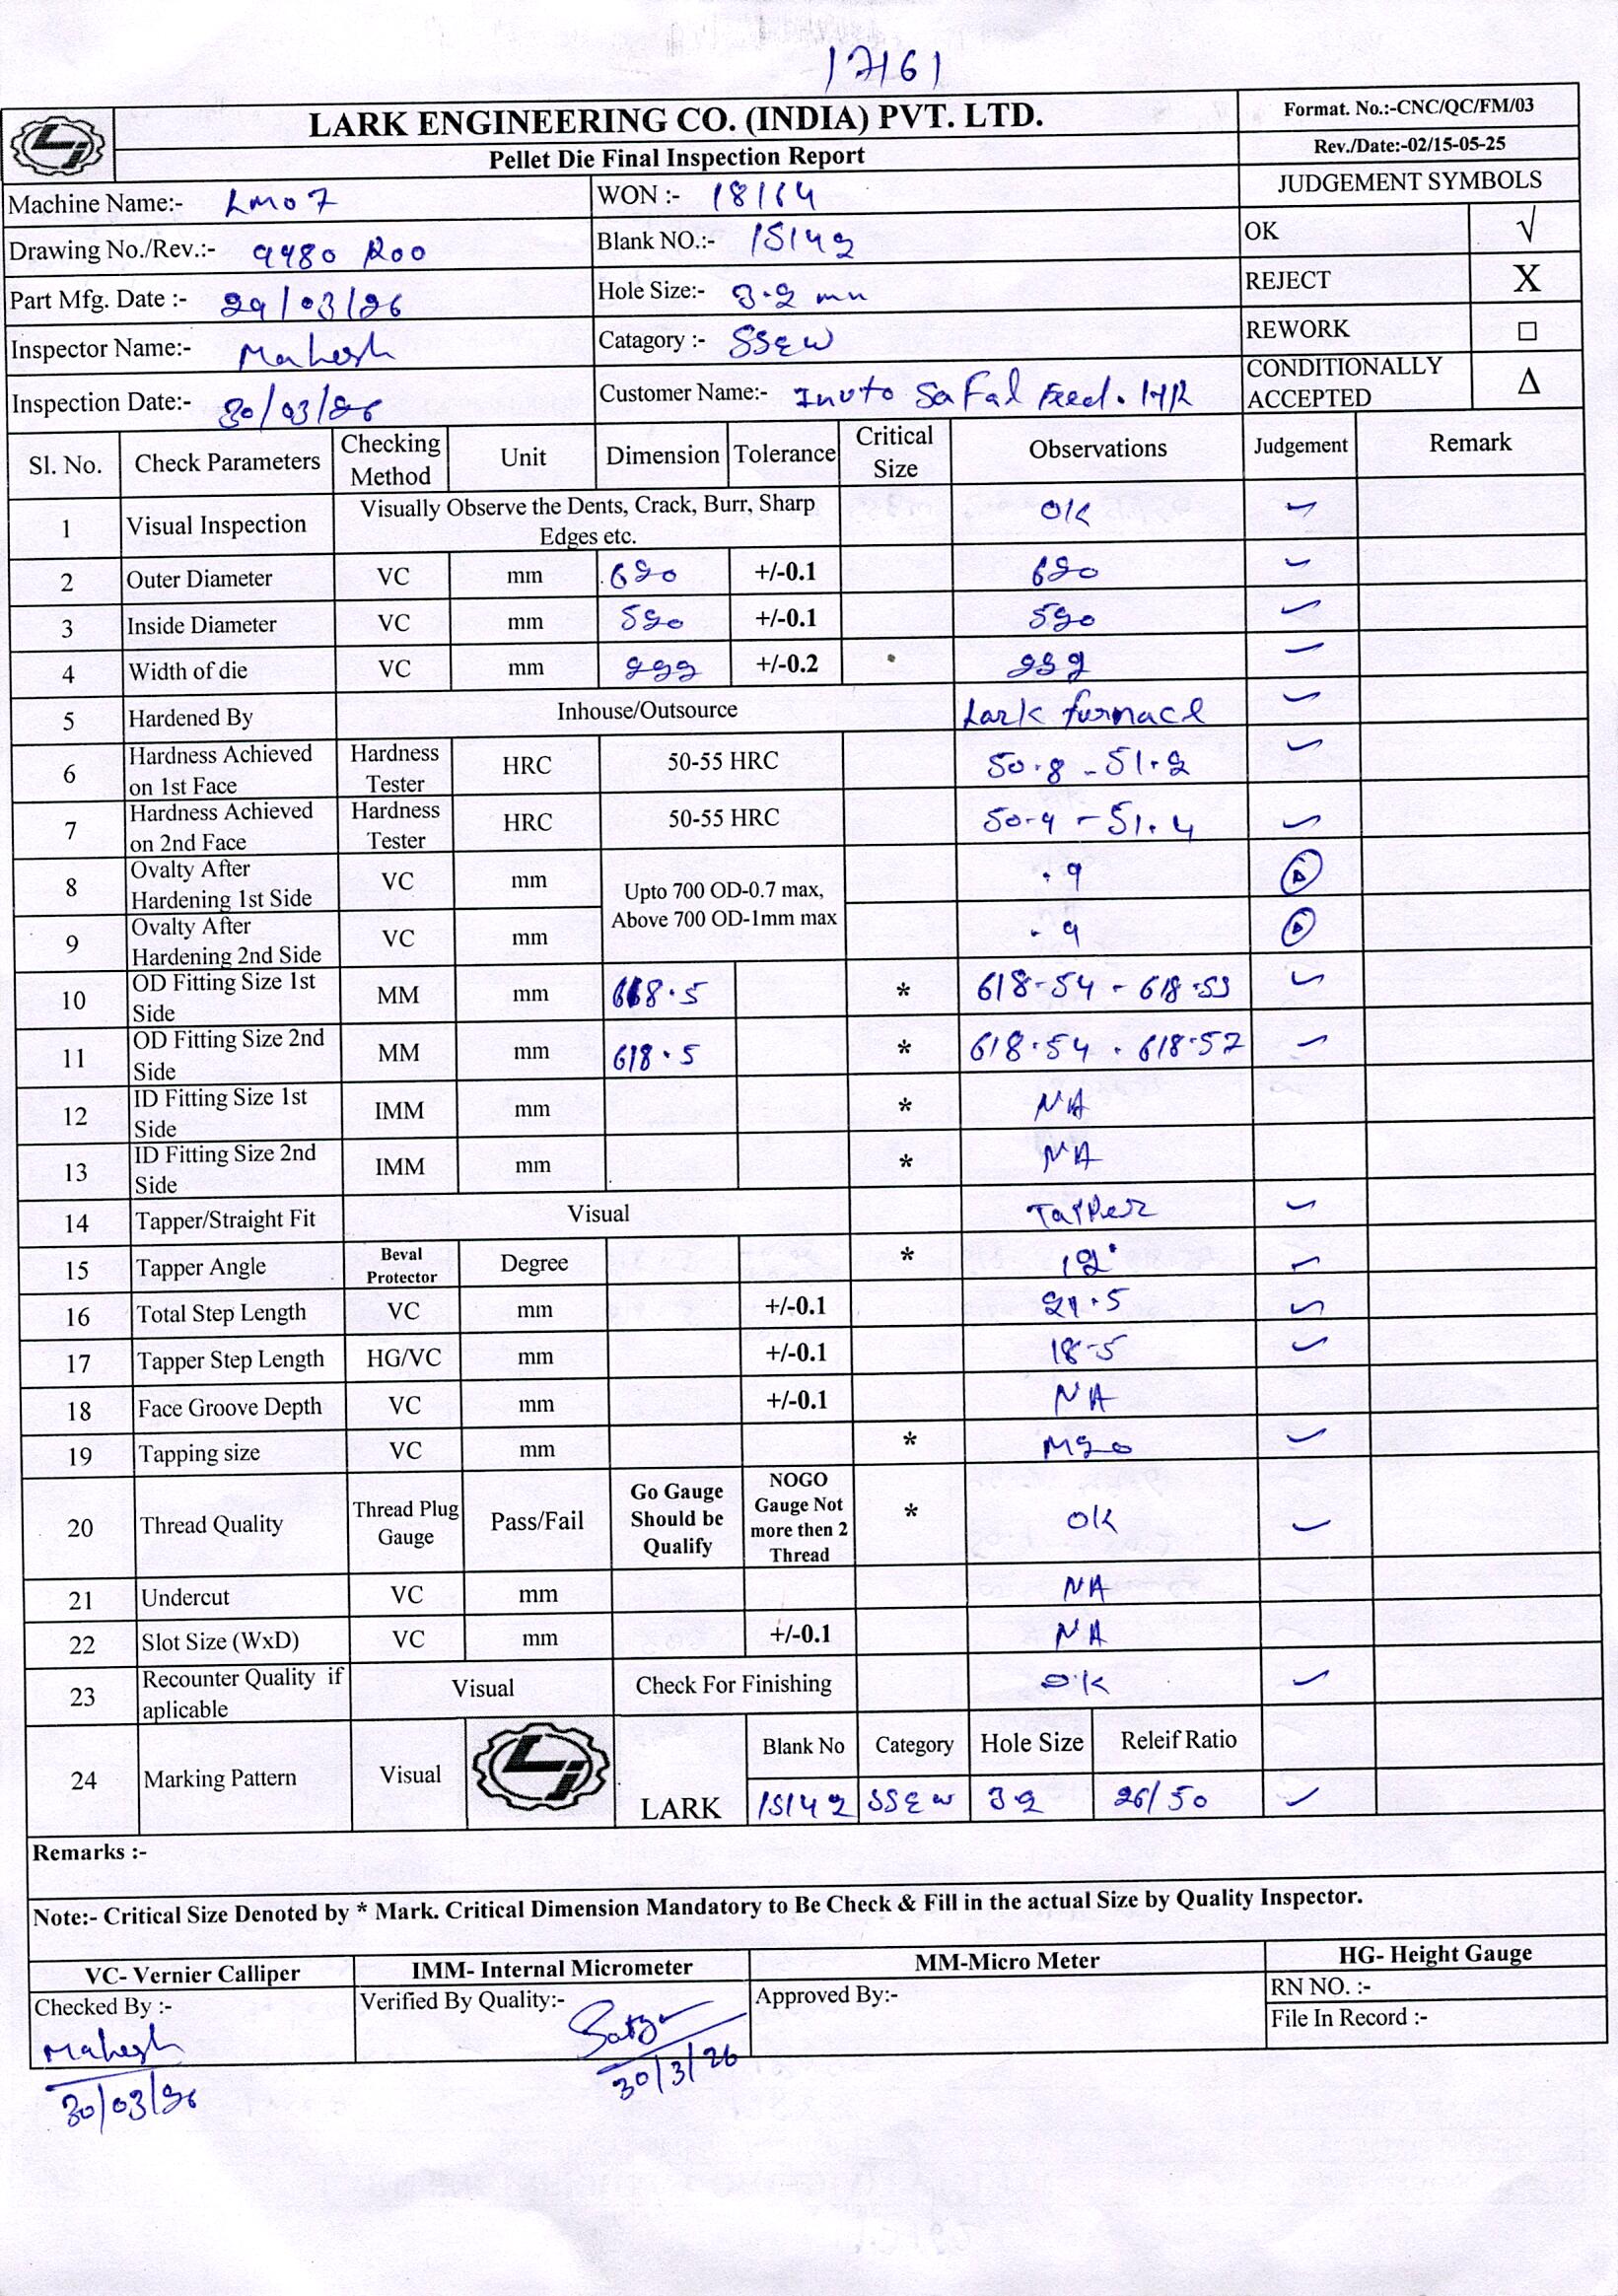 17161
LARK ENGINEERING CO. (INDIA) PVT. LTD.
Format. No.:-CNC/QC/FM/03
Pellet Die Final Inspection Report
Rev./Date:-02/15-05-25
Machine Name:- LM07
WON :- 18164
JUDGEMENT SYMBOLS
Drawing No./Rev.:- 9980 R00
Blank NO.:- 15142
OK √
Part Mfg. Date :- 29/03/26
Hole Size:- 3.2 mm
REJECT X
Inspector Name:- Mahesh
Catagory :- SSEW
REWORK □
Inspection Date:- 30/03/26
Customer Name:- Safal Feed. HR
CONDITIONALLY ACCEPTED Δ
Sl. No. Check Parameters Checking Method Unit Dimension Tolerance Critical Size Observations Judgement Remark
1 Visual Inspection Visually Observe the Dents, Crack, Burr, Sharp Edges etc. OK ✓
2 Outer Diameter VC mm 690 +/-0.1 690 ✓
3 Inside Diameter VC mm 520 +/-0.1 520 ✓
4 Width of die VC mm +/-0.2 ✓
5 Hardened By Inhouse/Outsource Lark furnace ✓
6 Hardness Achieved on 1st Face Hardness Tester HRC 50-55 HRC 50.8 - 51.2 ✓
7 Hardness Achieved on 2nd Face Hardness Tester HRC 50-55 HRC 50.9 - 51.4 ✓
8 Ovalty After Hardening 1st Side VC mm Upto 700 OD-0.7 max, Above 700 OD-1mm max .9 Δ
9 Ovalty After Hardening 2nd Side VC mm .9 Δ
10 OD Fitting Size 1st Side MM mm 618.5 * 618.54 - 618.53 ✓
11 OD Fitting Size 2nd Side MM mm 618.5 * 618.54 - 618.57 ✓
12 ID Fitting Size 1st Side IMM mm * NA
13 ID Fitting Size 2nd Side IMM mm * NA
14 Tapper/Straight Fit Visual Tapper ✓
15 Tapper Angle Beval Protector Degree * 12° ✓
16 Total Step Length VC mm +/-0.1 21.5 ✓
17 Tapper Step Length HG/VC mm +/-0.1 18.5 ✓
18 Face Groove Depth VC mm +/-0.1 NA
19 Tapping size VC mm * M20 ✓
20 Thread Quality Thread Plug Gauge Pass/Fail Go Gauge Should be Qualify NOGO Gauge Not more then 2 Thread * OK ✓
21 Undercut VC mm NA
22 Slot Size (WxD) VC mm +/-0.1 NA
23 Recounter Quality if aplicable Visual Check For Finishing OK ✓
24 Marking Pattern Visual LARK Blank No Category Hole Size Releif Ratio
15142 SSEW 3.2 26/50 ✓
Remarks :-
Note:- Critical Size Denoted by * Mark. Critical Dimension Mandatory to Be Check & Fill in the actual Size by Quality Inspector.
VC- Vernier Calliper IMM- Internal Micrometer MM-Micro Meter HG- Height Gauge
Checked By :- Verified By Quality:- Approved By:- RN NO. :-
File In Record :-
Mahesh
30/03/26
30/3/26